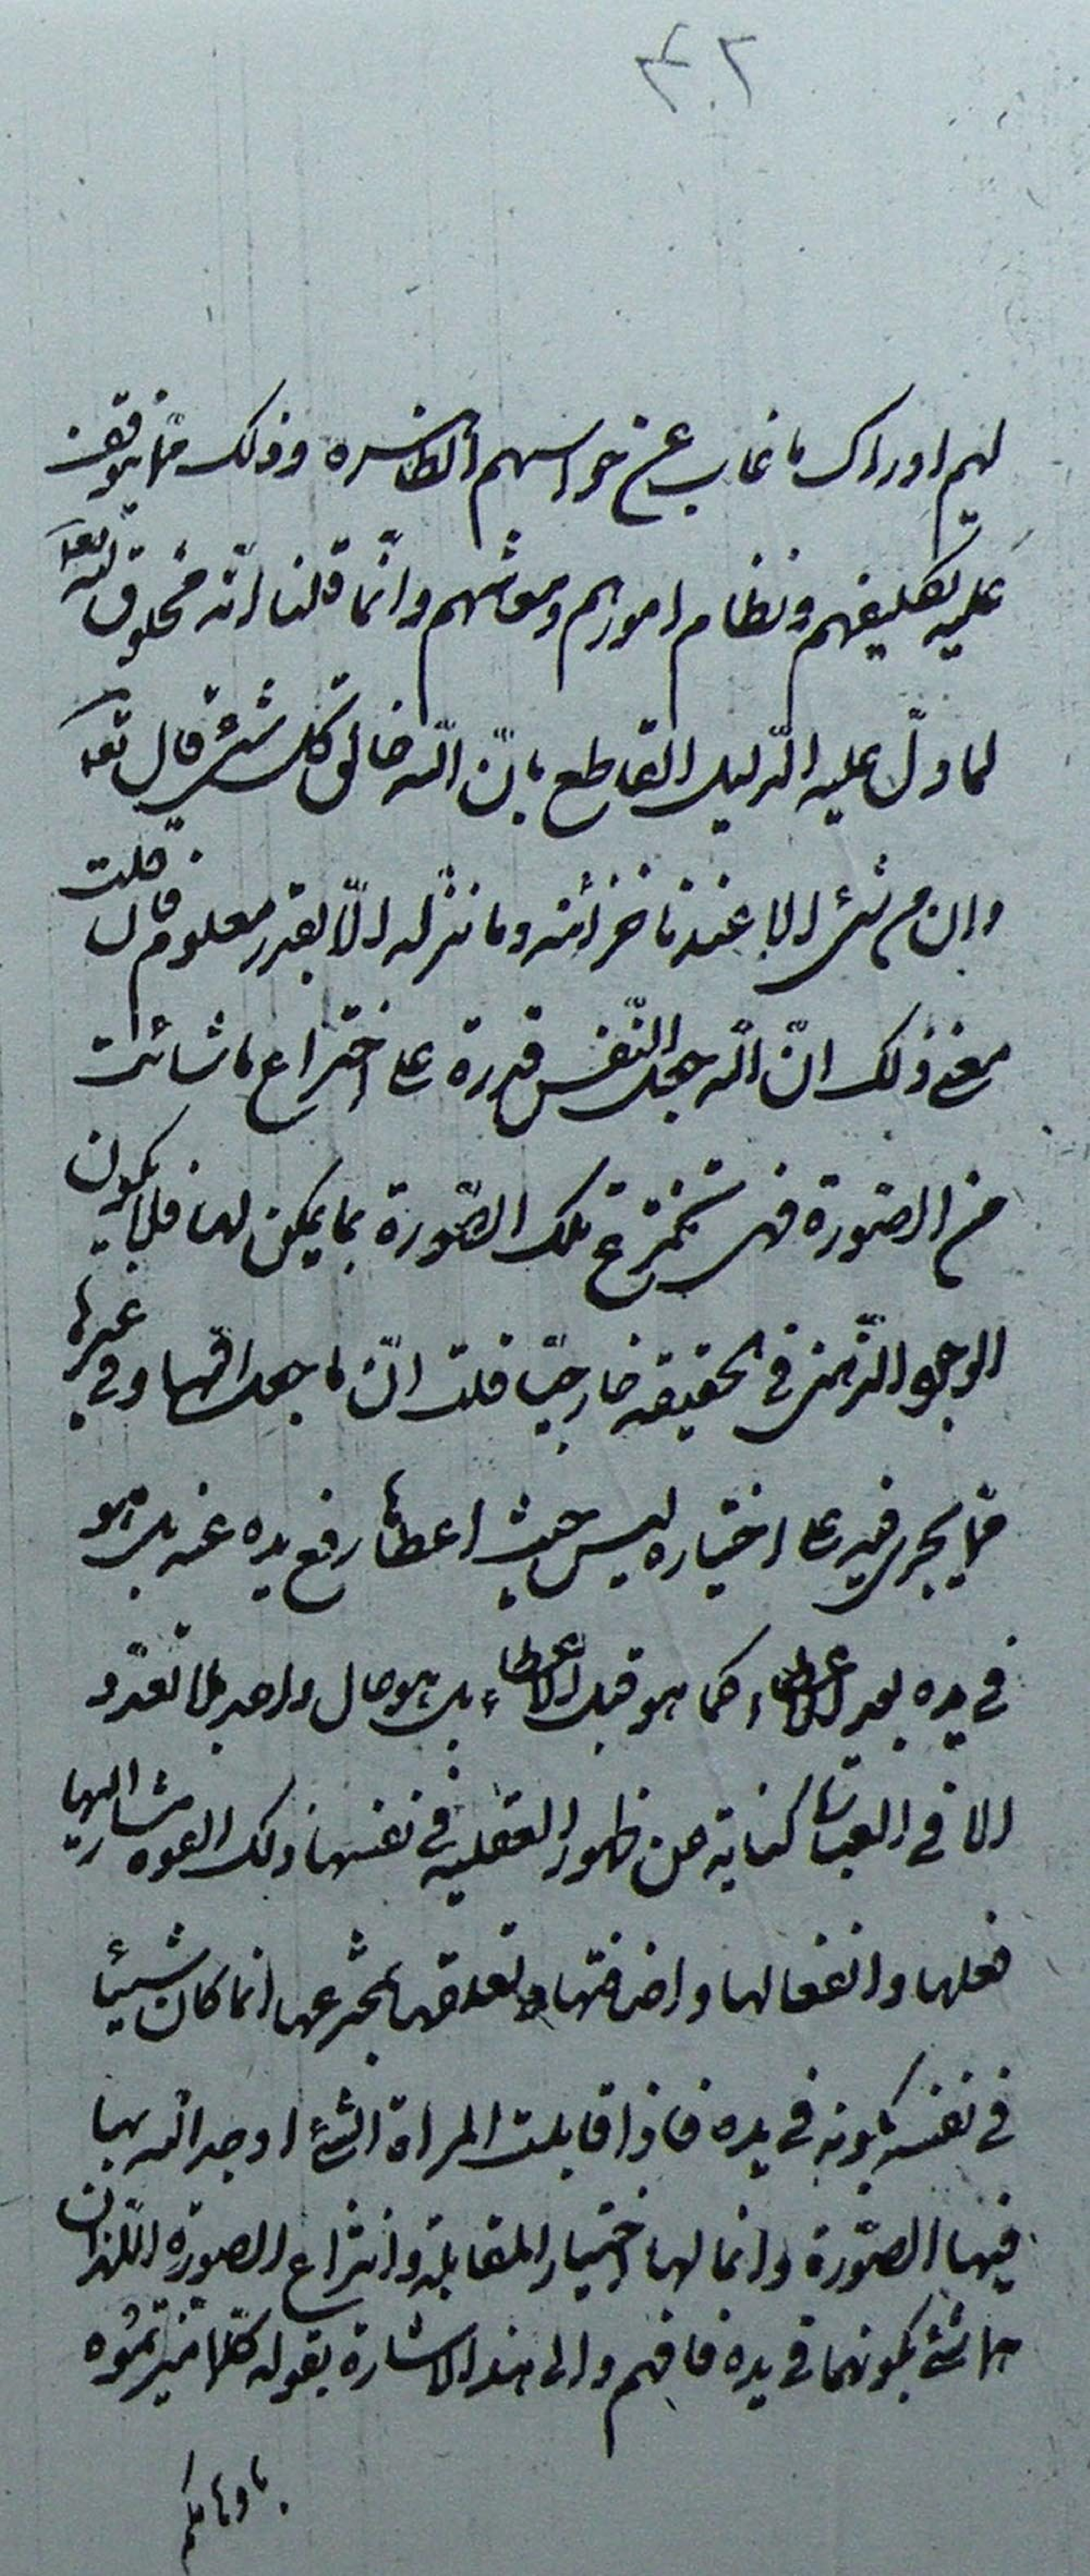 ٢٠٣
لهم ادراك ما غاب عن حواسهم الظاهره وذلك مما يتوقف
عليه تكليفهم ونظام امورهم ومعاشهم وانّما قلنا انّه مخلوق لله تعا
لما دلّ عليه الدّليل القاطع بانّ الله خالق كل شئ قال تعا
وان من شئ الا عندنا خزائنه وما ننزله الّا بقدر معلوم فان قلت
معنى ذلك انّ الله جعل للنّفس قدرة على اختراع ما شائت
من الصّورة فهى تخترع تلك الصّورة بما يمكن لها فلا يكون
الوجود الذّهنى فى الحقيقه خارجيّا قلت انّ ما جعل فيها وفى غيرها
مما يجرى فيه على اختياره ليس حيث اعطاها رفع يده عنه بل هو
فى يده بعد الاعطاء كما هو قبل الاعطاء بل هو حال واحد بلا تعدّد
الا فى العبارة كناية عن ظهور العقليه فى نفسها ذلك القوه المشار اليها
فعلها وانفعالها واضافتها وتعلقها بمخترعها انما كان شيئا
فى نفسه بكونه فى يده فاذا قابلت المراة الشئ اوجد الله بها
فيها الصّورة وانما لها اختيار المقابلة وانتزاع الصورة اللذان
هما شئ بكونهما فى يده فافهم والى هذا الاشارة بقوله كلما ميزتموه
باوهامكم